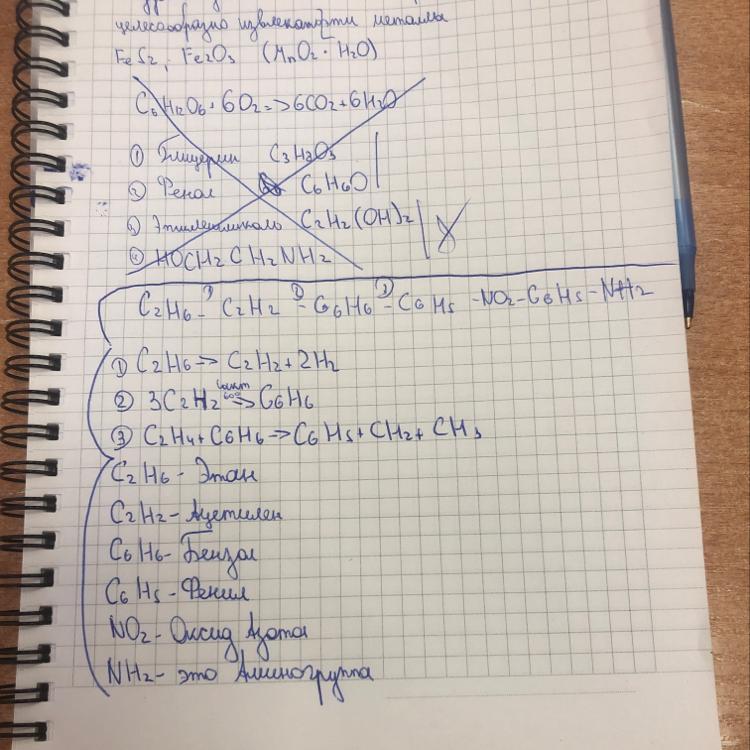 целесообразно извлекать эти металлы
FeS2, Fe2O3 (MnO2 · H2O)
C6H12O6 + 6O2 => 6CO2 + 6H2O
① Глицерин C3H8O3
② Фенол C6H6O
③ Этиленгликоль C2H2(OH)2
④ HOCH2CH2NH2
C2H6 -① C2H2 -② C6H6 -③ C6H5 - NO2 - C6H5 - NH2
① C2H6 => C2H2 + 2H2
② 3C2H2 => C6H6
③ C2H4 + C6H6 -> C6H5 + CH2 + CH3
C2H6 - Этан
C2H2 - Ацетилен
C6H6 - Бензол
C6H5 - Фенил
NO2 - Оксид Азота
NH2 - это Аминогруппа